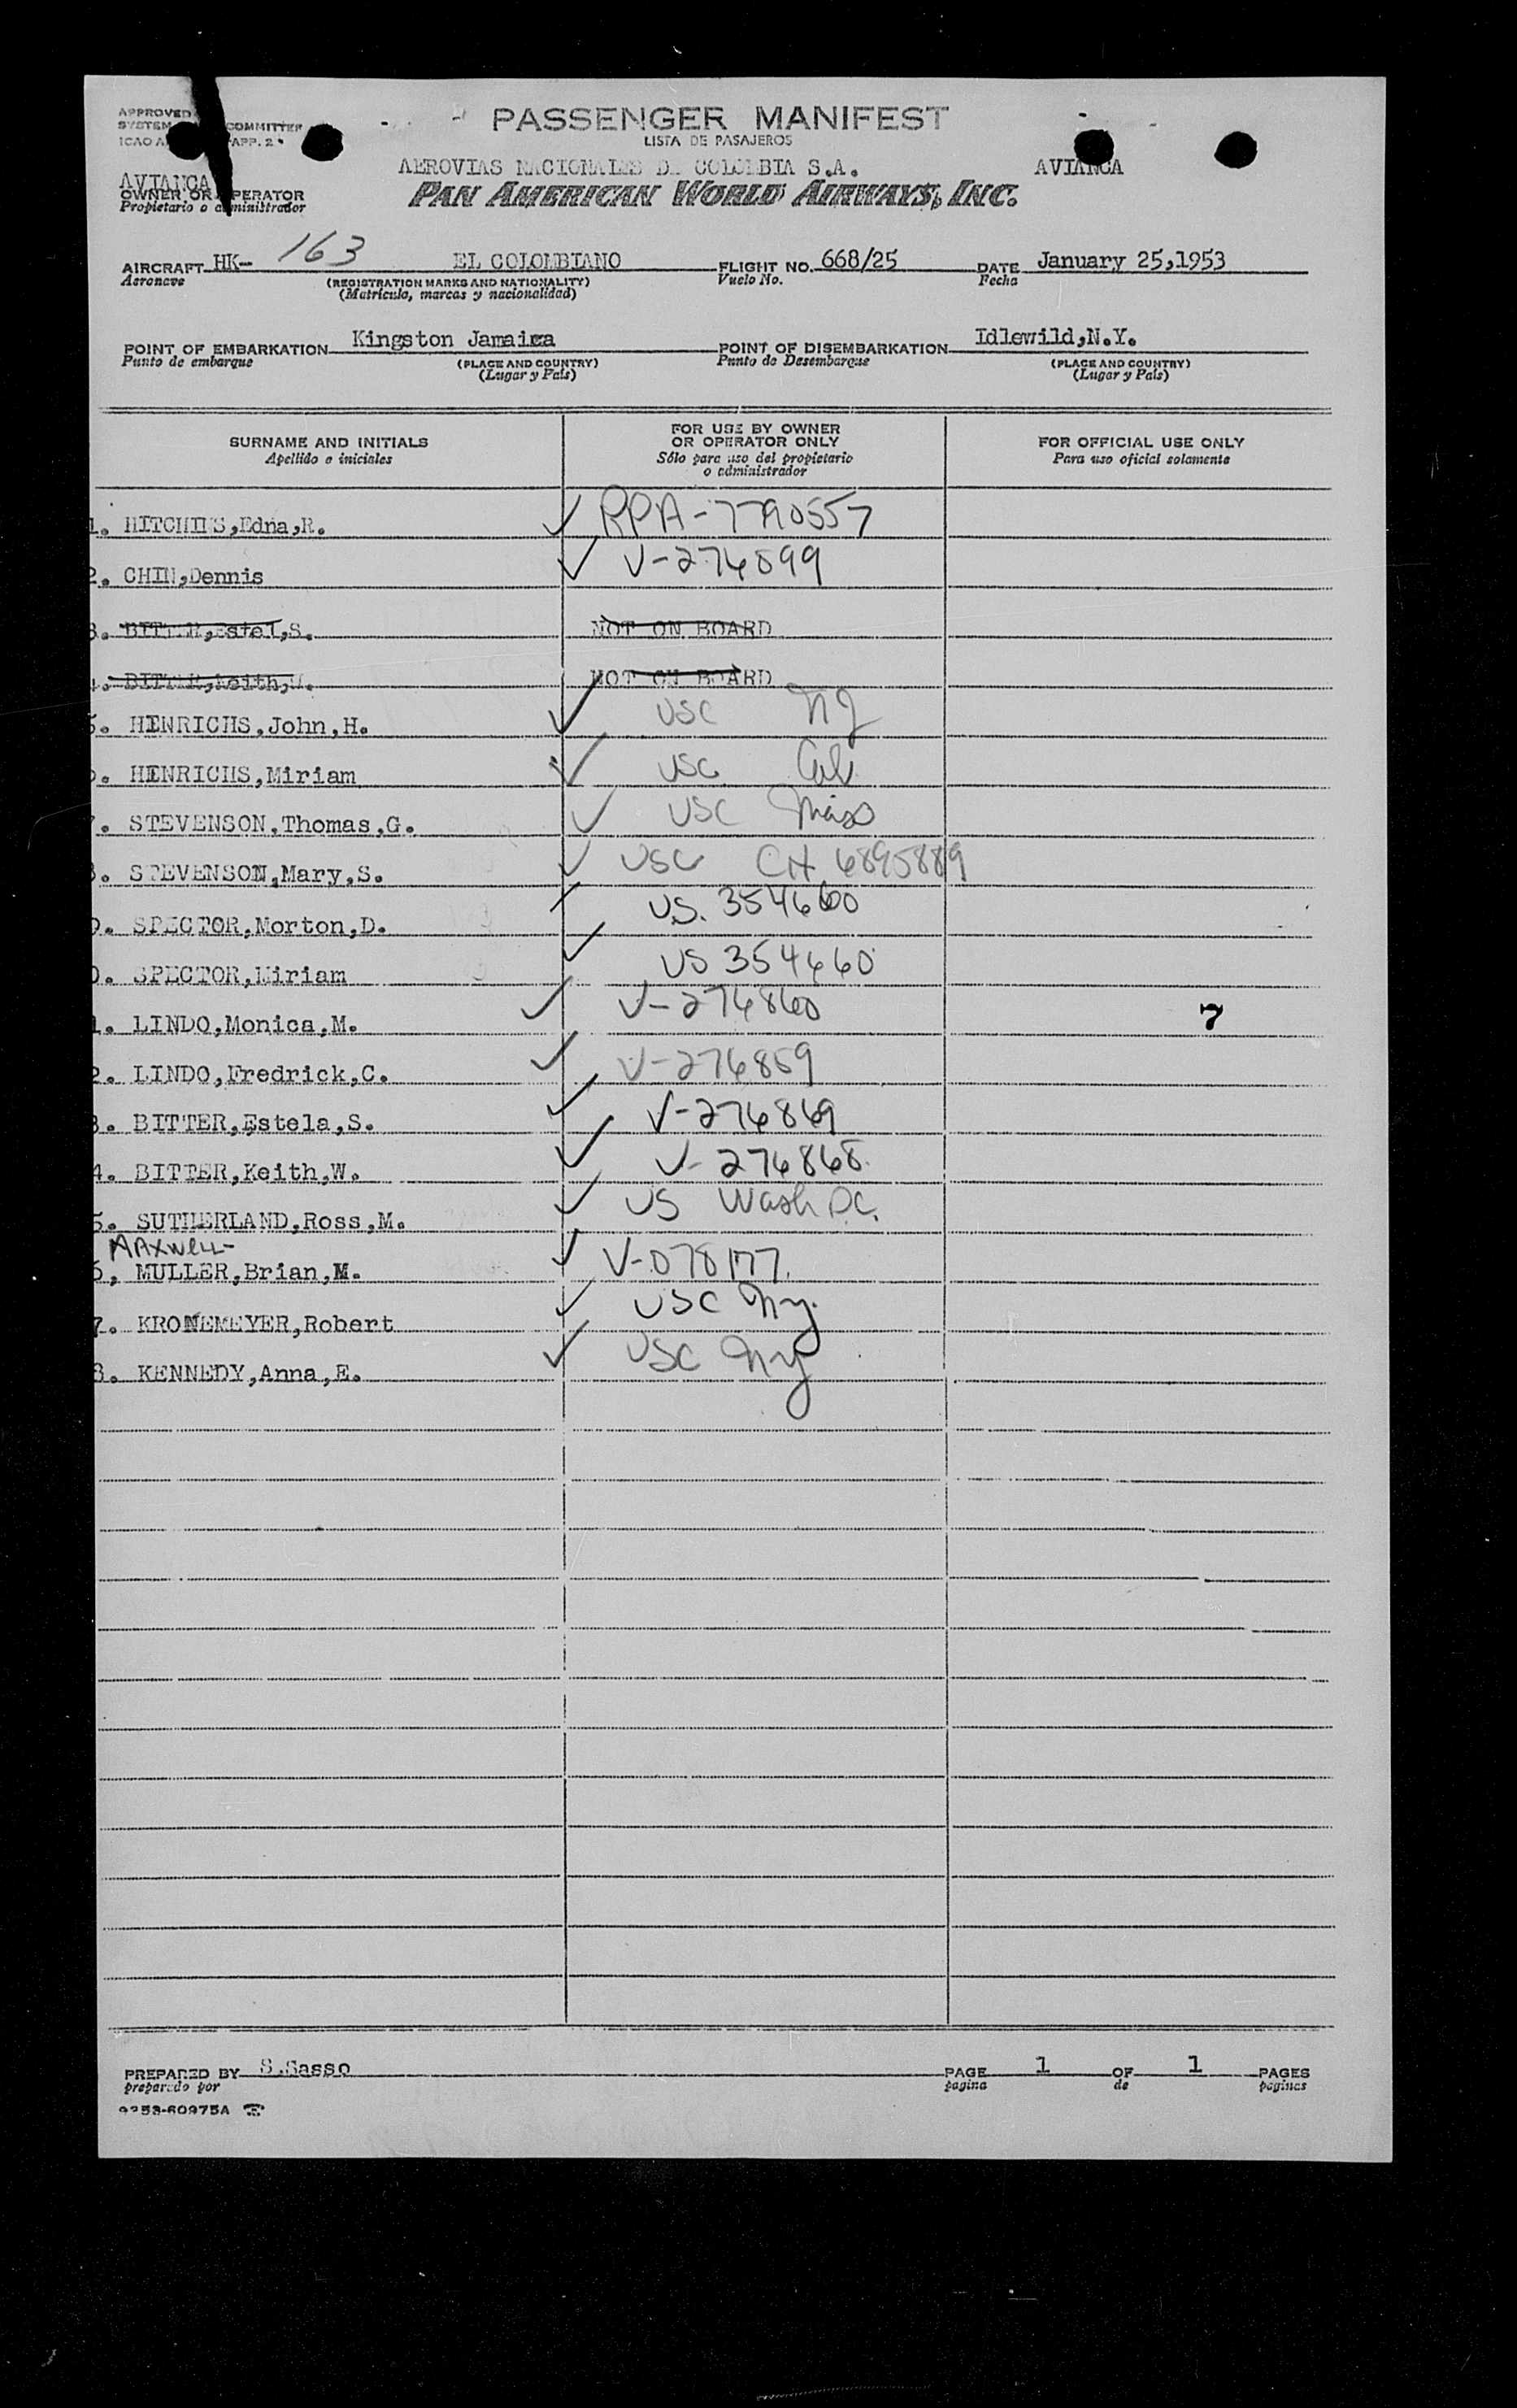 APPROVED
SYSTEM COMMITTEE
ICAO APP. 2
PASSENGER MANIFEST
LISTA DE PASAJEROS
AEROVIAS NACIONALES DE COLOMBIA S.A. AVIANCA
PAN AMERICAN WORLD AIRWAYS, INC.
AVIANCA
OWNER OR OPERATOR
Propietario o administrador
AIRCRAFT HK- 163 EL COLOMBIANO FLIGHT NO. 668/25 DATE January 25,1953
Aeronave (REGISTRATION MARKS AND NATIONALITY) Vuelo No. Fecha
(Matrícula, marcas y nacionalidad)
POINT OF EMBARKATION Kingston Jamaica POINT OF DISEMBARKATION Idlewild,N.Y.
Punto de embarque (PLACE AND COUNTRY) Punto de Desembarque (PLACE AND COUNTRY)
(Lugar y País) (Lugar y País)
SURNAME AND INITIALS FOR USE BY OWNER OR OPERATOR ONLY FOR OFFICIAL USE ONLY
Apellido e iniciales Sólo para uso del propietario o administrador Para uso oficial solamente
1. HITCHINS,Edna,R. ✓ RPA-7790557
2. CHIN,Dennis ✓ V-274899
3. BITTER,Estel,S. NOT ON BOARD
4. BITTER,Keith,W. NOT ON BOARD
5. HENRICHS,John,H. ✓ USC NJ
6. HENRICHS,Miriam ✓ USC Cal.
7. STEVENSON,Thomas,G. ✓ USC Miss
8. STEVENSON,Mary,S. ✓ USC CH 6895889
9. SPECTOR,Morton,D. ✓ U.S. 354660
0. SPECTOR,Miriam ✓ US 354660
1. LINDO,Monica,M. ✓ V-274860 7
2. LINDO,Fredrick,C. ✓ V-274859
3. BITTER,Estela,S. ✓ V-274869
4. BITTER,Keith,W. ✓ V-274868
5. SUTHERLAND,Ross,M. ✓ US Wash D.C.
MAXWELL-
6, MULLER,Brian,M. ✓ V-078177.
7. KRONEMEYER,Robert ✓ USC Ny.
8. KENNEDY,Anna,E. ✓ USC Ny
PREPARED BY S.Sasso PAGE 1 OF 1 PAGES
preparado por pagina de paginas
9253-60975A